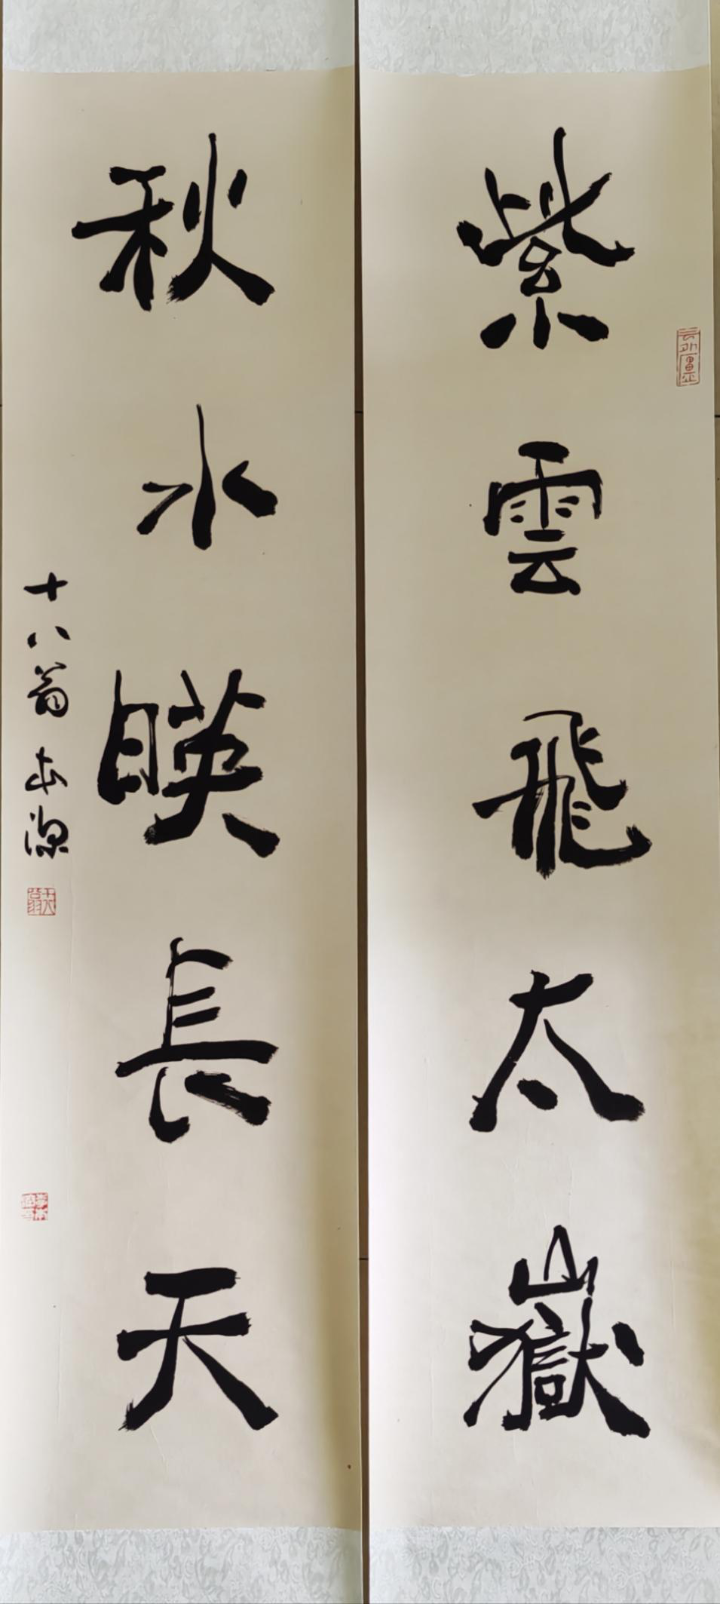 紫雲飛太嶽
秋水暎長天
十八翁